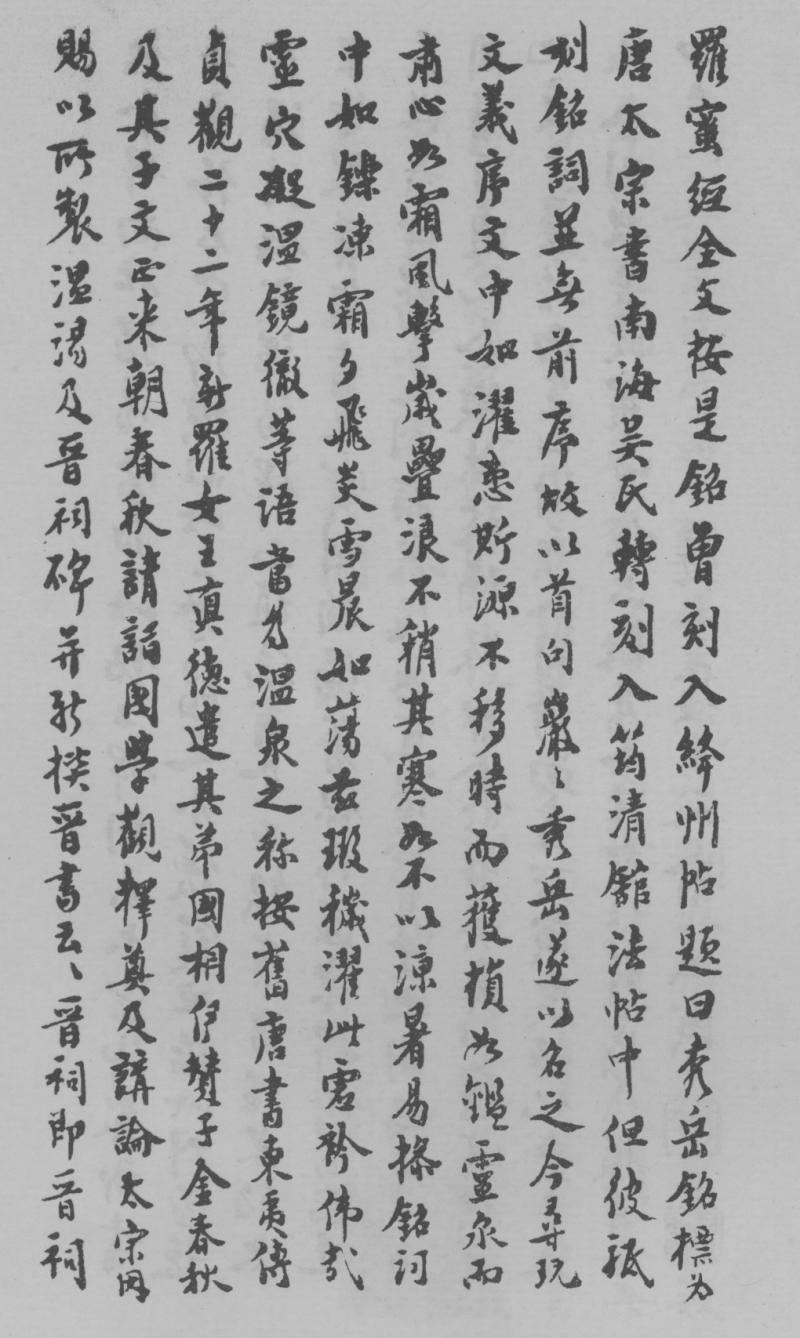 羅蜜經全文按是銘曾刻入絳州帖題曰秀岳銘標為
唐太宗書南海吳氏轉刻入筠清館法帖中但彼祇
刻銘詞並無前序故以首句巖〻秀岳遂以名之今尋玩
文義序文中如濯患斯源不移時而獲損如鑑靈泉而
肅心如霜風擊崴疊浪不稍其寒如不以涼暑易操銘詞
中如鑠凍霜夕飛炎雪晨如蕩茲瑕穢濯此虛衿偉哉
靈穴凝溫鏡徹等語當為溫泉之称按舊唐書東夷傳
貞觀二十二年新羅女王真德遣其弟國相伊贊子金春秋
及其子文正来朝春秋請詣國學觀釋奠及講論太宗因
賜以所製溫湯及晋祠碑并新撰晋書云〻晋祠即晋祠